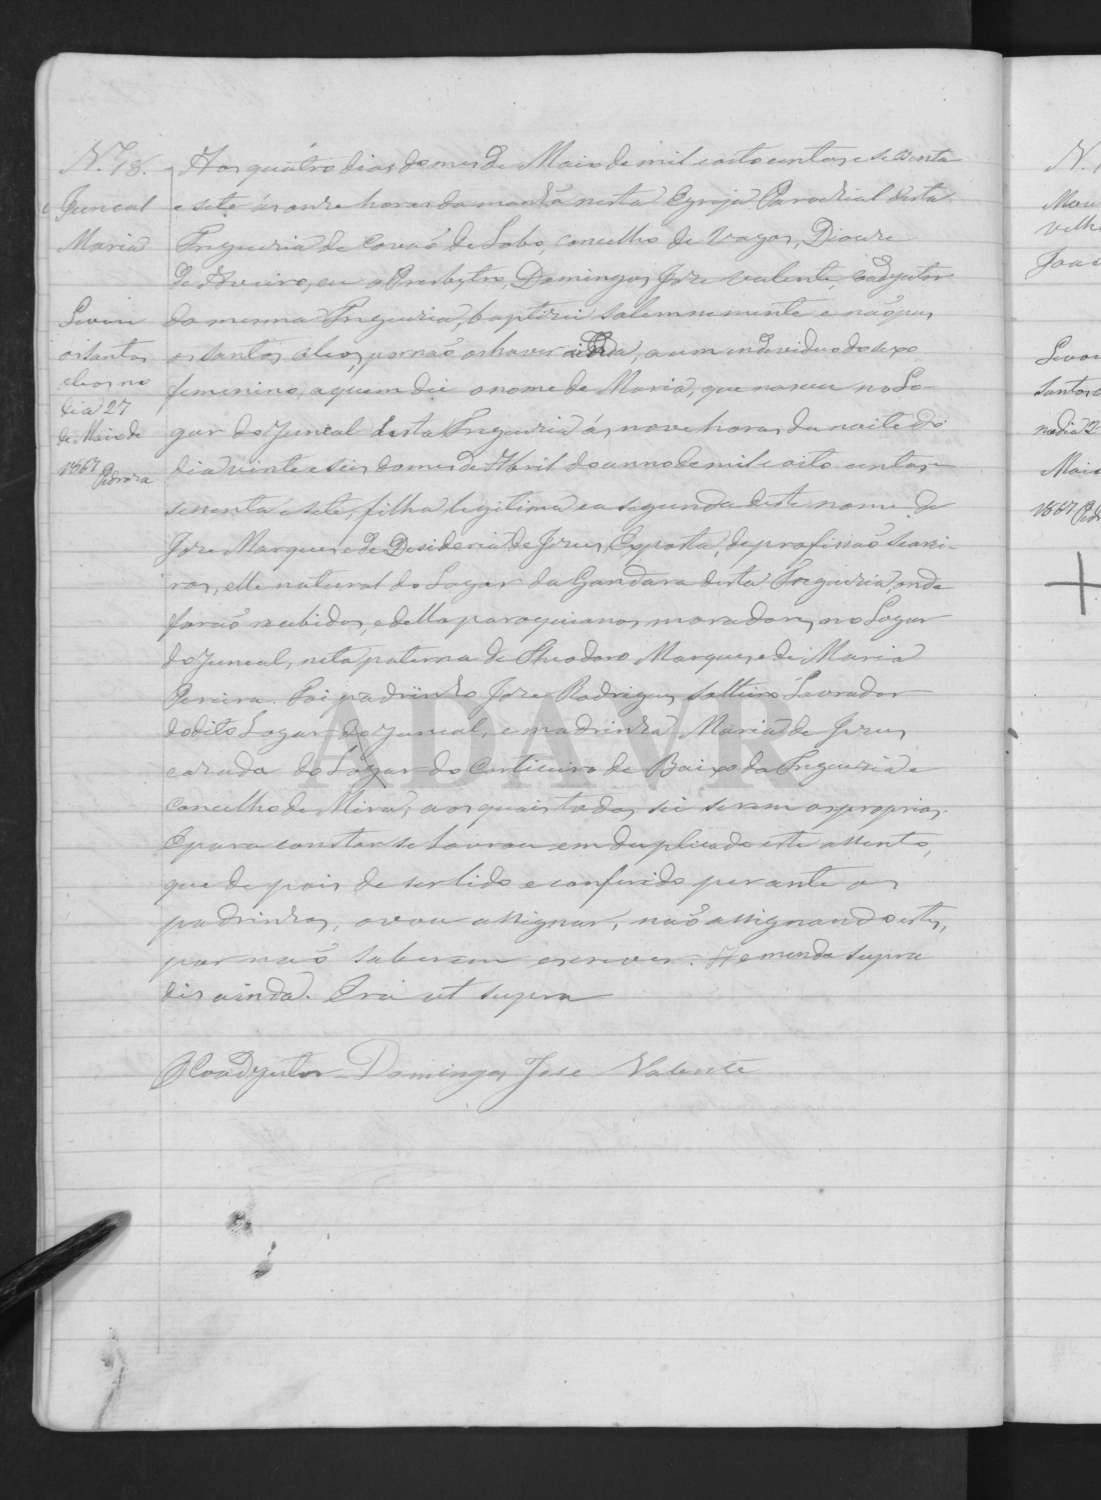 N.º 18.
Juncal
Maria
Levou
os Santos
oleos no
dia 27
de Maio de
1867 Pedroza
Aos quatro dias do mes de Maio de mil e oito centos e sessenta
e sete ás onze horas da manhã nesta Egreja Parochial desta
Freguezia de Covaõ do Lobo, concelho de Vagos, Diocese
de Aveiro, eu o Presbytro Domingos Jose Valente, Coadjutor
da mesma Freguezia, baptizei solemnemente e naõ puz
os santos oleos, por naõ os haver ainda, a um individuo do sexo
femenino, a quem dei o nome de Maria, que nasceu no Lo-
gar do Juncal desta Freguezia ás nove horas da noite do
dia vinte e seis do mes de Abril do anno de mil e oito centos
sessenta e sete, filha legitima e a segunda deste nome de
Jose Marques e de Desideria de Jesus, Exposta, de profissaõ Seare-
ros, elle natural do Logar da Gandara desta Freguezia, onde
foraõ recebidos, e della paroquianos, moradores no Logar
do Juncal, neta paterna de Theodoro Marques e de Maria
Pereira. Foi padrinho Jose Rodrigues, solteiro, Lavrador
do dito Logar do Juncal, e madrinha Maria de Jesus
cazada do Logar do Corticeiro de Baixo da Freguezia e
Concelho de Mira, aos quais todos sei serem os proprios.
E para constar se lavrou em duplicado este assento,
que depois de ser lido e conferido perante os
padrinhos, o vou assignar, naõ assignando estes,
por naõ saberem escrever. A emenda supra
diz ainda. Era ut supra
O Coadjutor Domingos Jose Valente
ADAVR
N.
Levou
Santos
no dia 2
Maio
1867 Ped